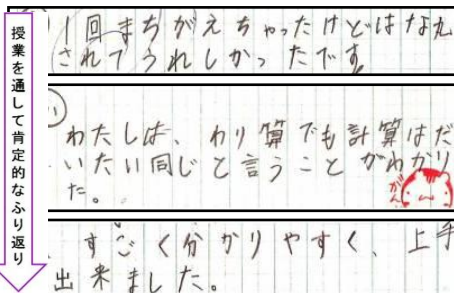 授業を通して肯定的なふり返り
1回まちがえちゃったけどはな丸
されてうれしかったです
わたしは、わり算でも計算はだ
いたい同じと言うことがわかり
た。
すごく分かりやすく、上手
出来ました。
がん